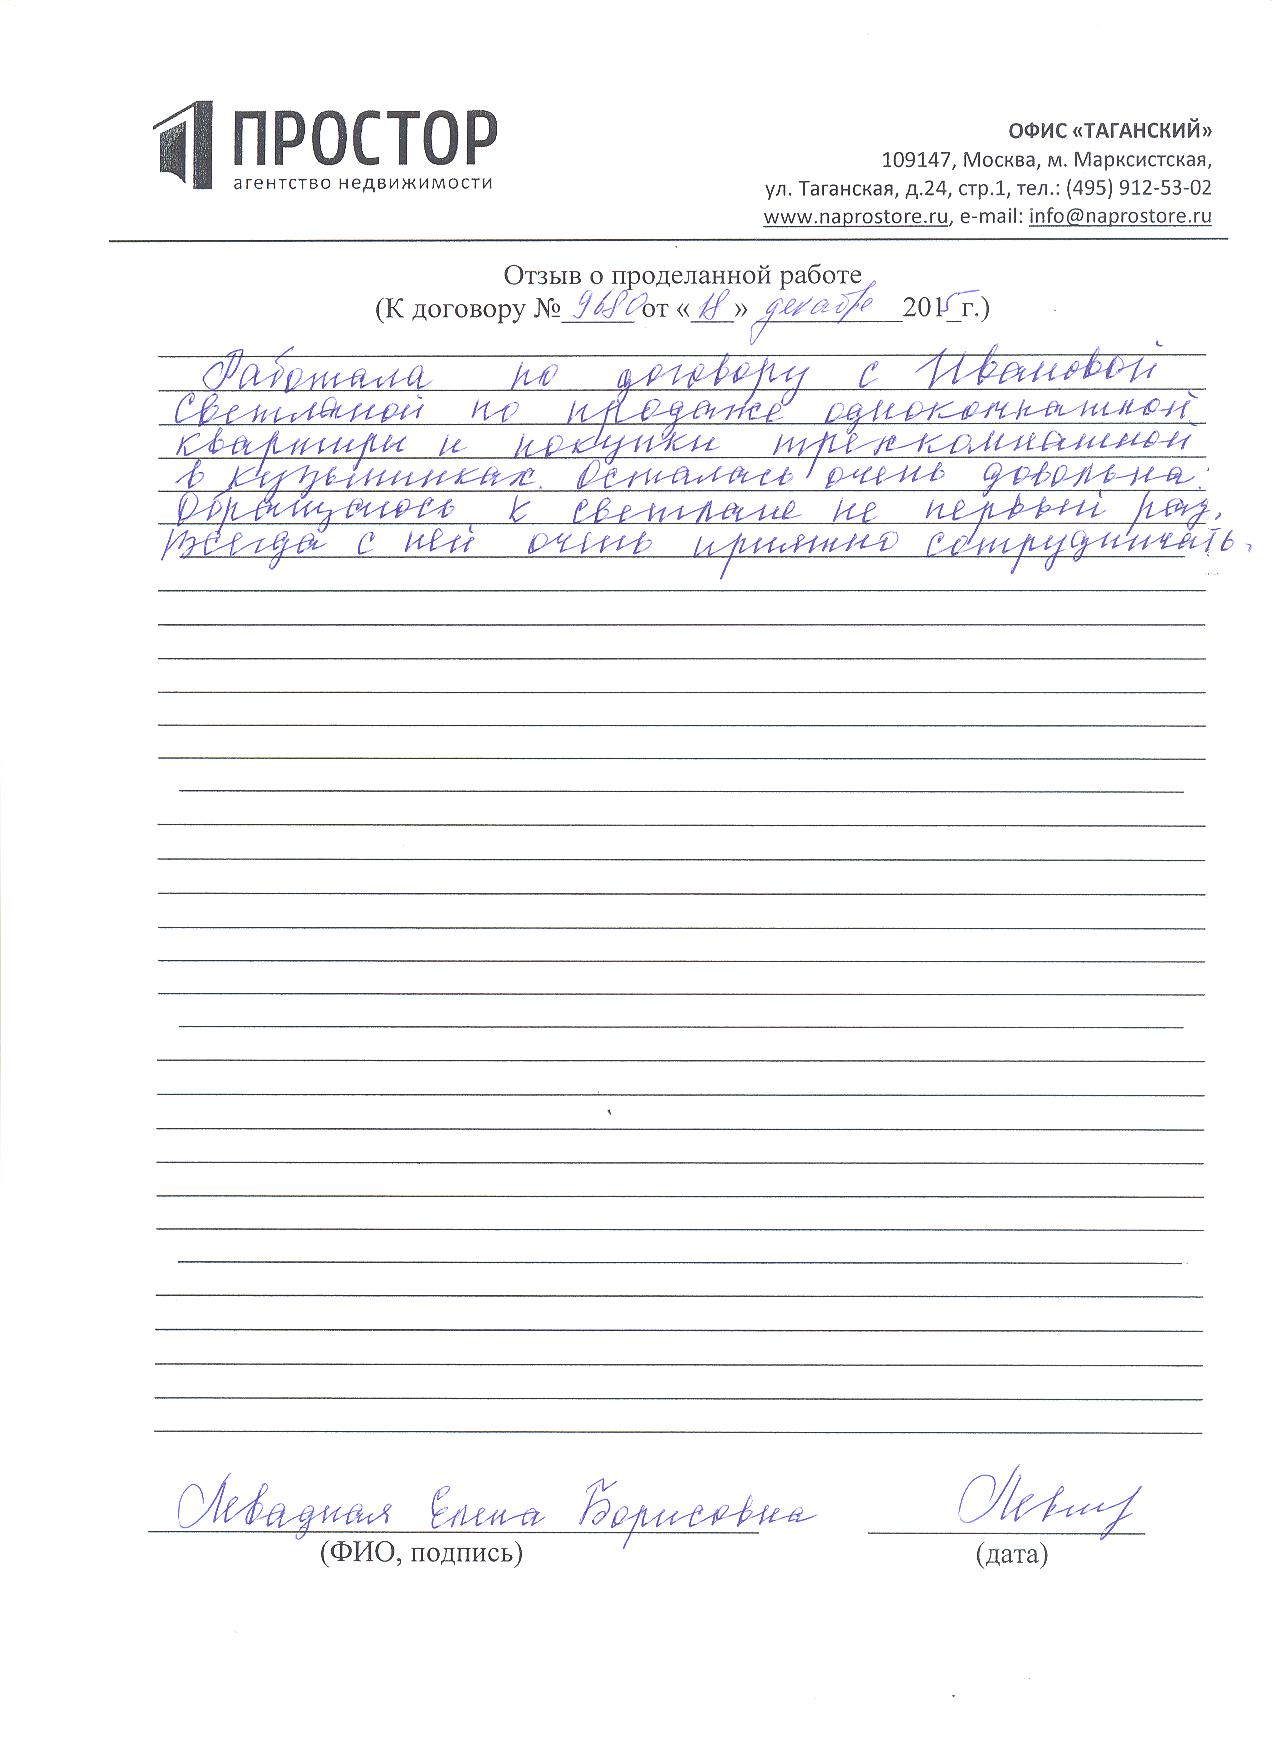 ПРОСТОР
агентство недвижимости
ОФИС «ТАГАНСКИЙ»
109147, Москва, м. Марксистская,
ул. Таганская, д.24, стр.1, тел.: (495) 912-53-02
www.naprostore.ru, e-mail: info@naprostore.ru
Отзыв о проделанной работе
(К договору № 9680 от «18» декабря 2015 г.)
Работала по договору с Ивановой
Светланой по продаже однокомнатной
квартиры и покупки трехкомнатной
в кузьминках. Осталась очень довольна.
Обращаюсь к светлане не первый раз,
всегда с ней очень приятно сотрудничать.
Левадная Елена Борисовна
(ФИО, подпись)
(дата)